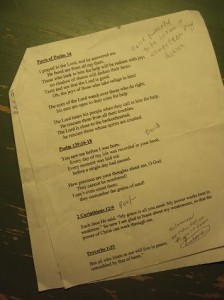 Parts of Psalm 34
I prayed to the Lord, and he answered me.
He freed me from all my fears.
Those who look to him for help will be radiant with joy;
no shadow of shame will darken their faces.
Taste and see that the Lord is good.
Oh, the joys of those who take refuge in him!
The eyes of the Lord watch over those who do right;
his ears are open to their cries for help.
The Lord hears his people when they call to him for help.
He rescues them from all their troubles.
The Lord is close to the brokenhearted;
he rescues those whose spirits are crushed.
Psalm 139:16-18
You saw me before I was born.
Every day of my life was recorded in your book.
Every moment was laid out
before a single day had passed.
How precious are your thoughts about me, O God.
They cannot be numbered!
I can't even count them;
they outnumber the grains of sand!
2 Corinthians 12:9
Each time He said, "My grace is all you need. My power works best in
weakness." So now I am glad to boast about my weaknesses, so that the
power of Christ can work through me.
Proverbs 1:33
But all who listen to me will live in peace,
untroubled by fear of harm."